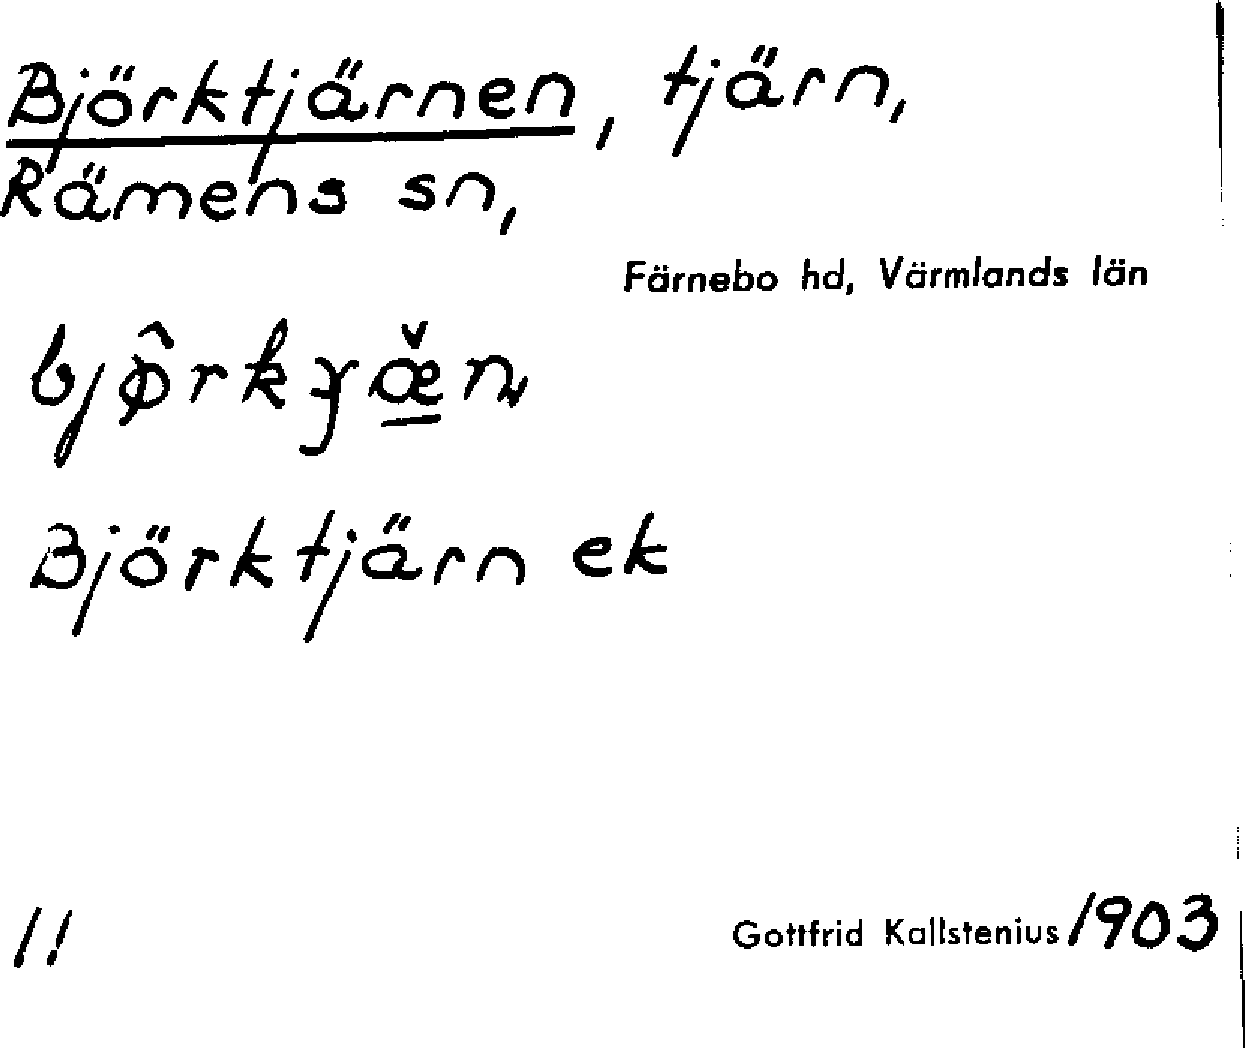 Björktjärnen, tjärn,
Rämens sn,
Färnebo hd, Värmlands län
Björktjärn ek
11
Gottfrid Kallstenius 1903